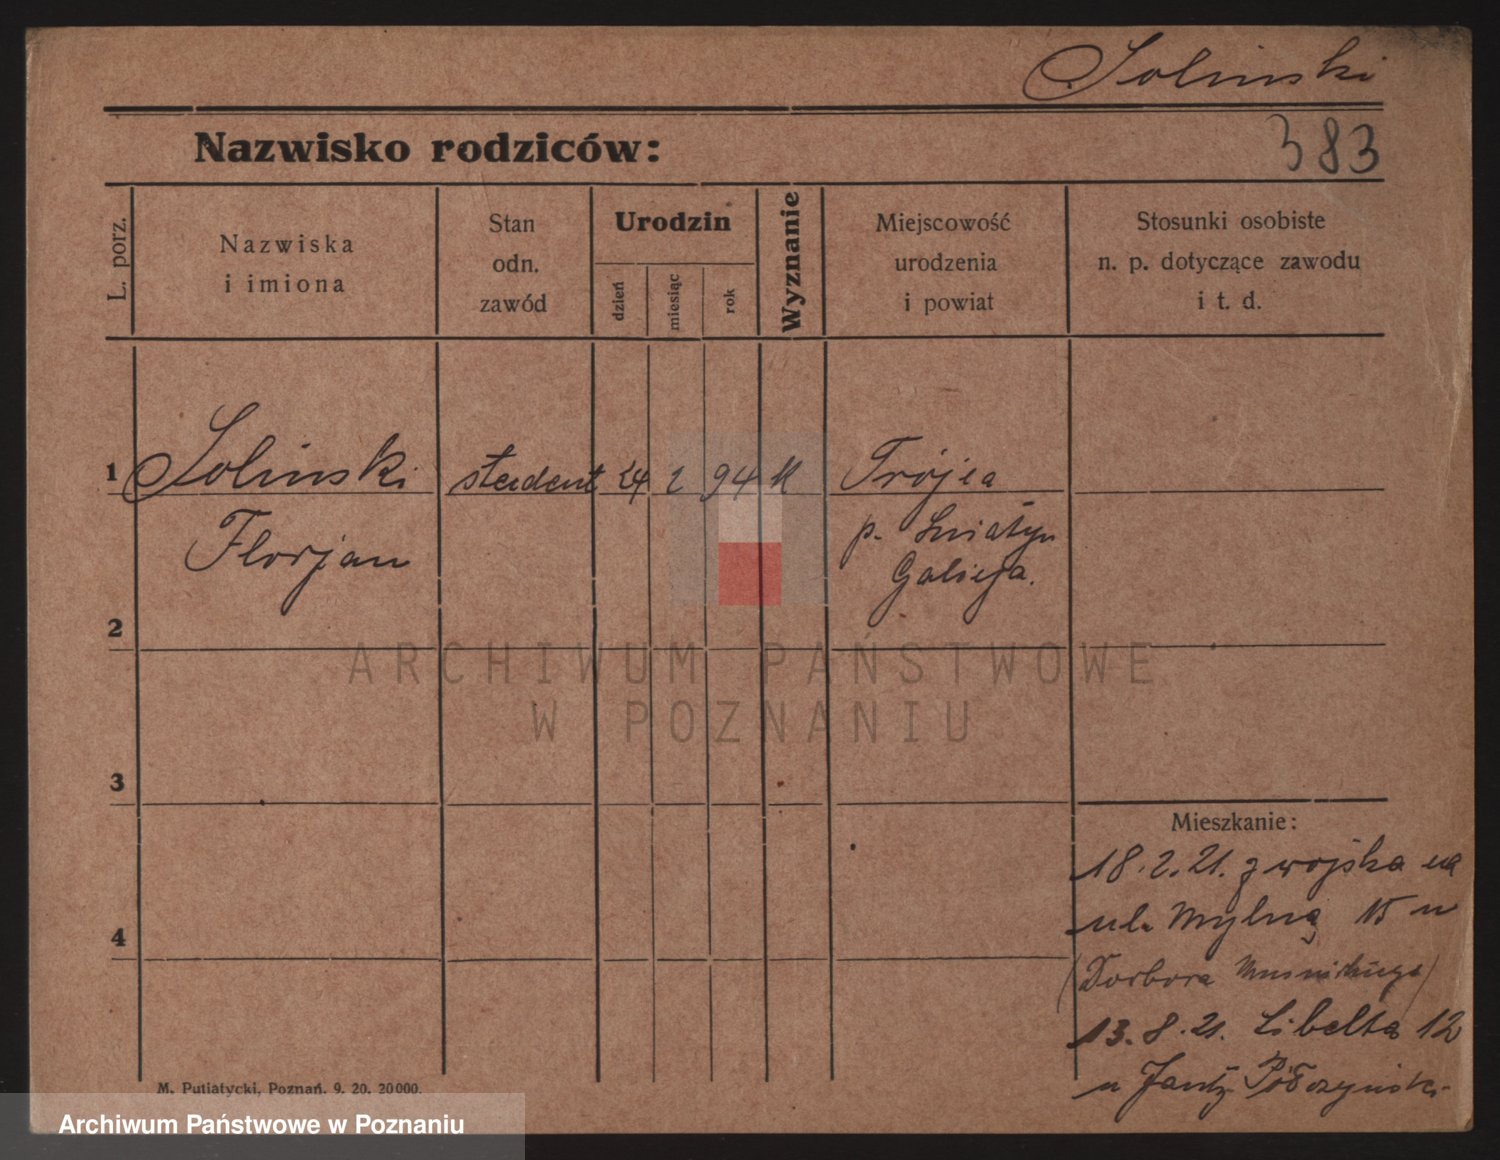 Solinski
Nazwisko rodziców:
383
L. porz.
Nazwiska
i imiona
Stan
odn.
zawód
Urodzin
dzień
miesiąc
rok
Wyznanie
Miejscowość
urodzenia
i powiat
Stosunki osobiste
n. p. dotyczące zawodu
i t. d.
1
Solinski student 24 2 94 K Trójca
Florjan
p. Sniatyn
Galicja.
2
ARCHIWUM PAŃSTWOWE
W POZNANIU
3
Mieszkanie:
18.2.21. z wojska na
ul. Mylną 15 u
4
(Dorbora
13.8.21. Libelta 12
u Półczyński
M. Putiatycki, Poznań. 9. 20. 20000.
Archiwum Państwowe w Poznaniu